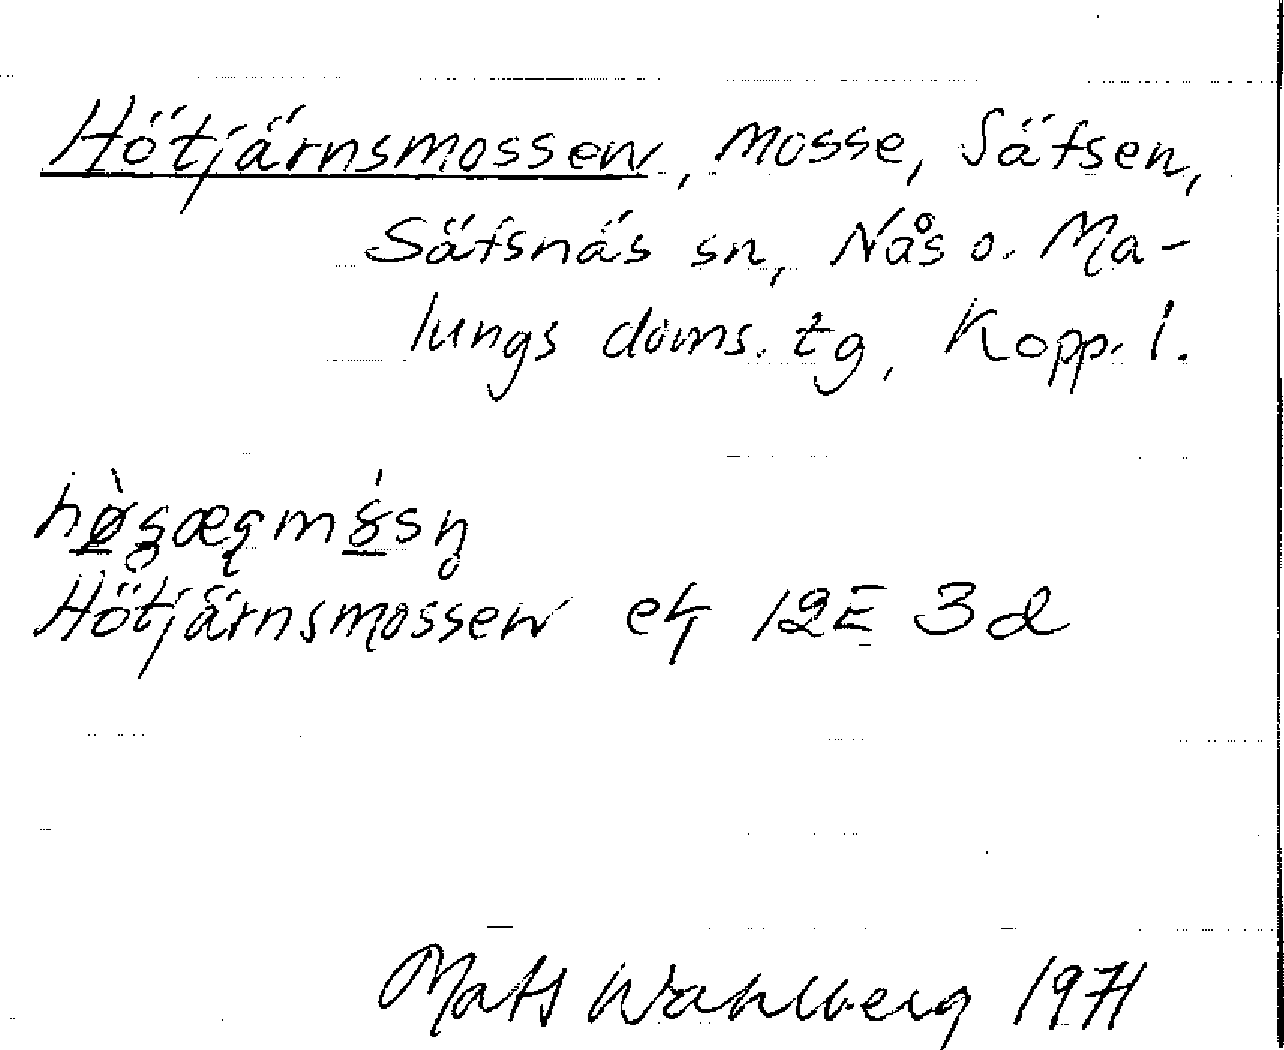 Hötjärnsmossen, mosse, Säfsen,
Säfsnäs sn, Nås o. Ma-
lungs doms. tg, Kopp. l.
Hötjärnsmossen ek 12E 3d
Mats Wahlberg 1971